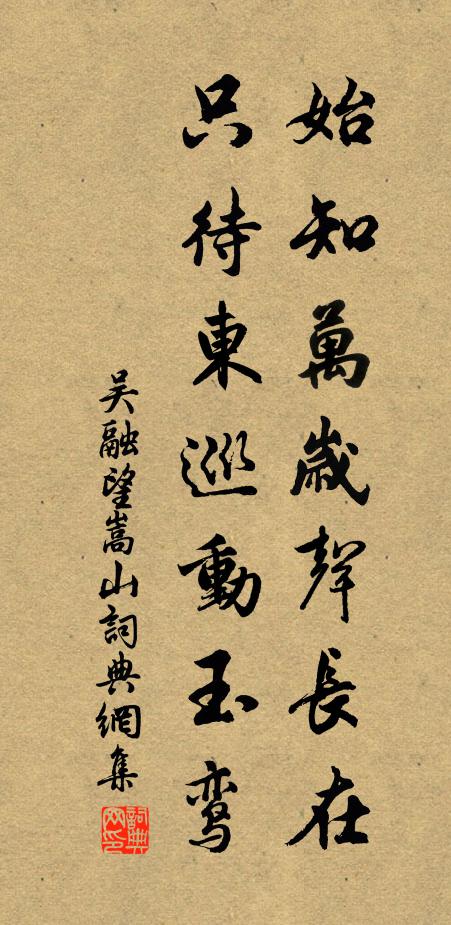 始知萬歲聲長在
只待東巡動玉鸾
吴融望嵩山詞典網集
詞典网印